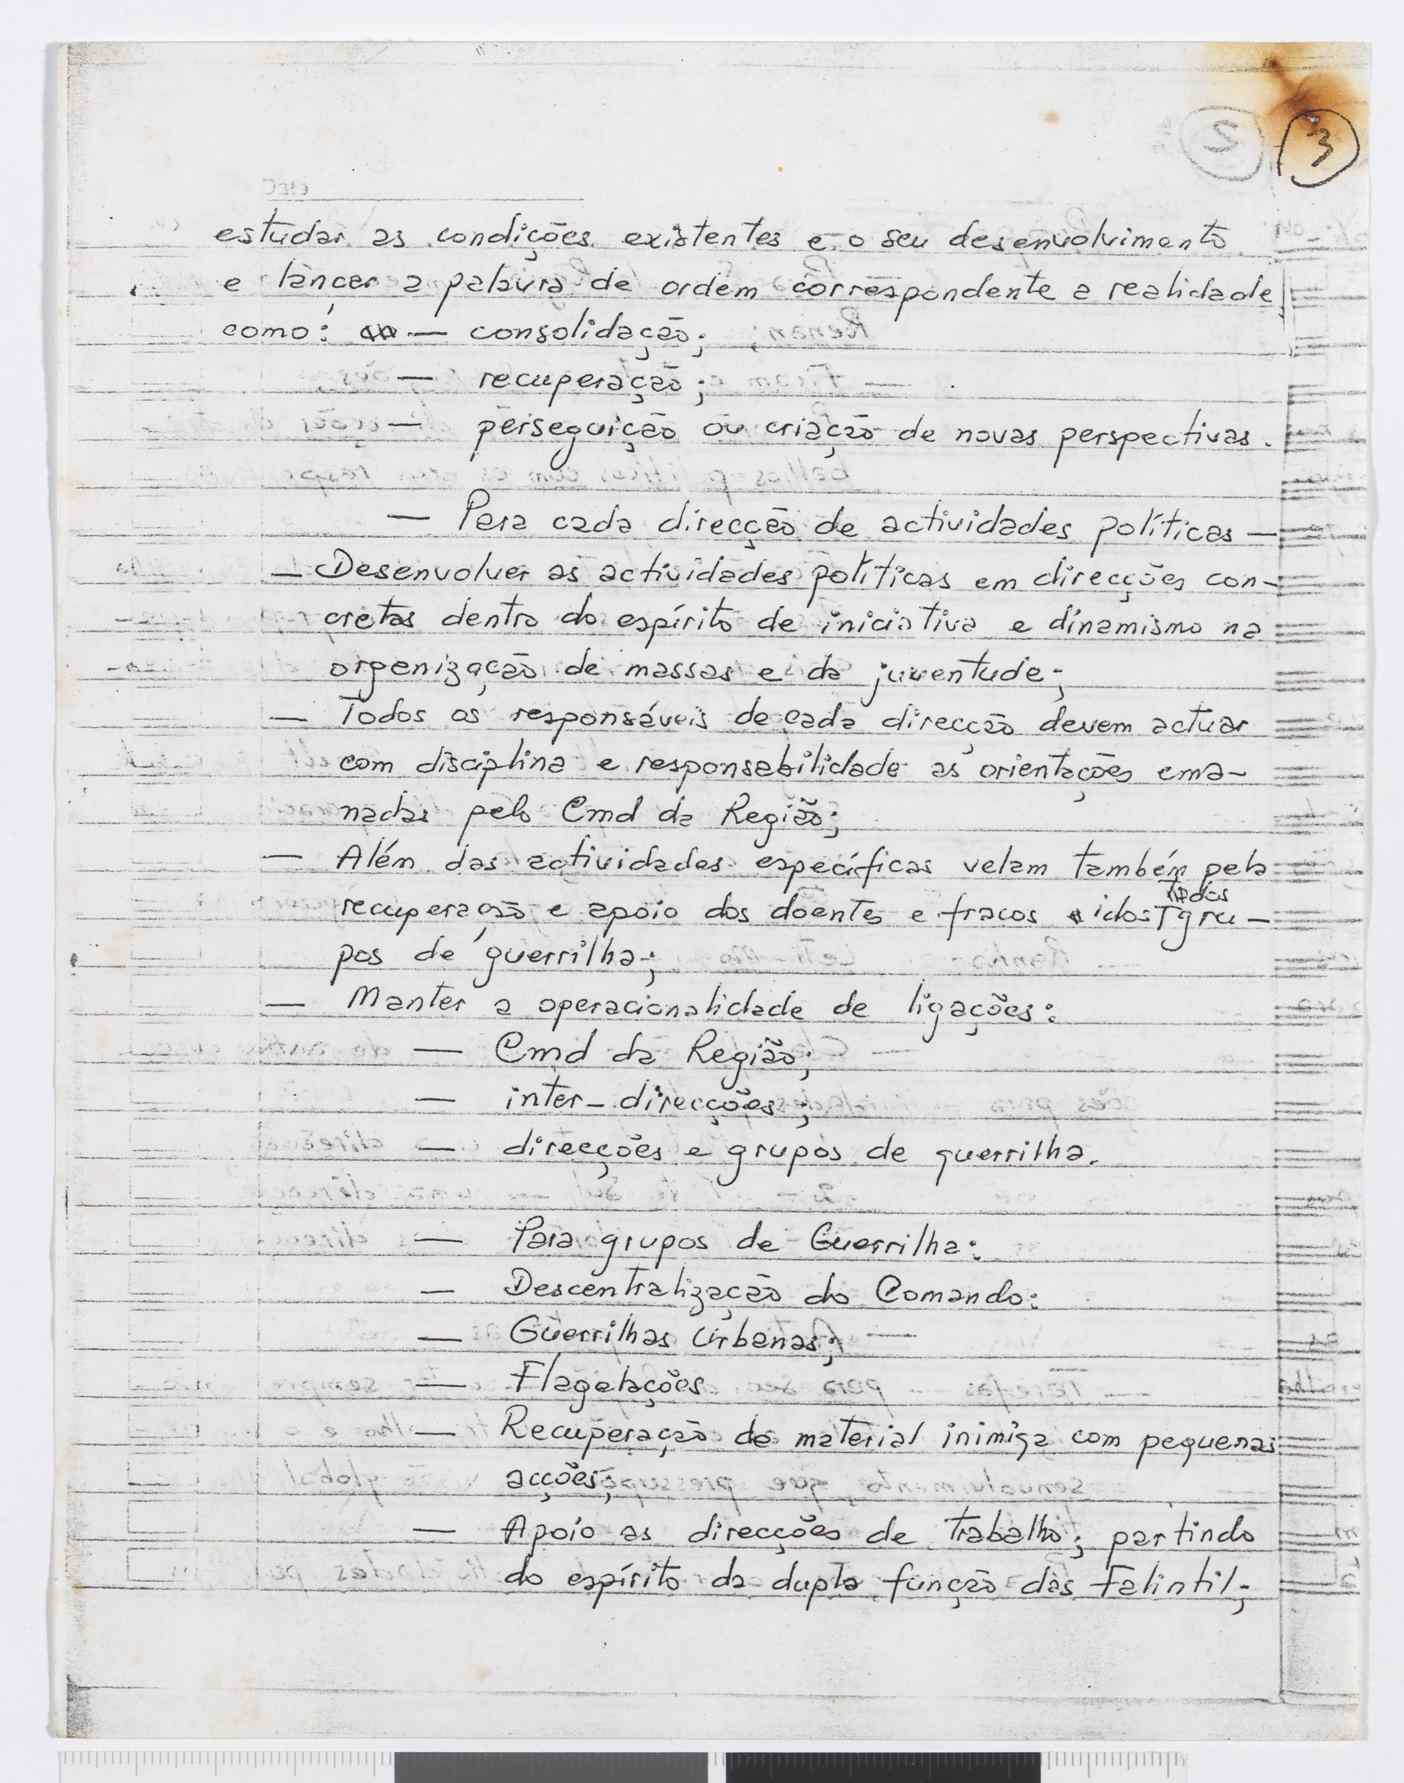 5 3
estudar as condições existentes e o seu desenvolvimento
e lançar a palavra de ordem correspondente a realidade,
como: — consolidação;
— recuperação;
— perseguição ou criação de novas perspectivas.
— Para cada direcção de actividades políticas —
— Desenvolver as actividades políticas em direcções con-
cretas dentro do espírito de iniciativa e dinamismo na
organização de massas e da juventude;
— Todos os responsáveis de cada direcção devem actuar
com disciplina e responsabilidade as orientações ema-
nadas pelo Cmd da Região;
— Além das actividades específicas velam também pela
recuperação e apoio dos doentes e fracos idos dos gru-
pos de guerrilha;
— Manter a operacionalidade de ligações:
— Cmd da Região;
— inter-direcções;
— direcções e grupos de guerrilha.
— Para grupos de Guerrilha:
— Descentralização do Comando:
— Guerrilhas Urbanas;
— Flagelações
— Recuperação de material inimiga com pequenas
acções;
— Apoio as direcções de trabalho; partindo
do espírito da dupla função das Falintil;